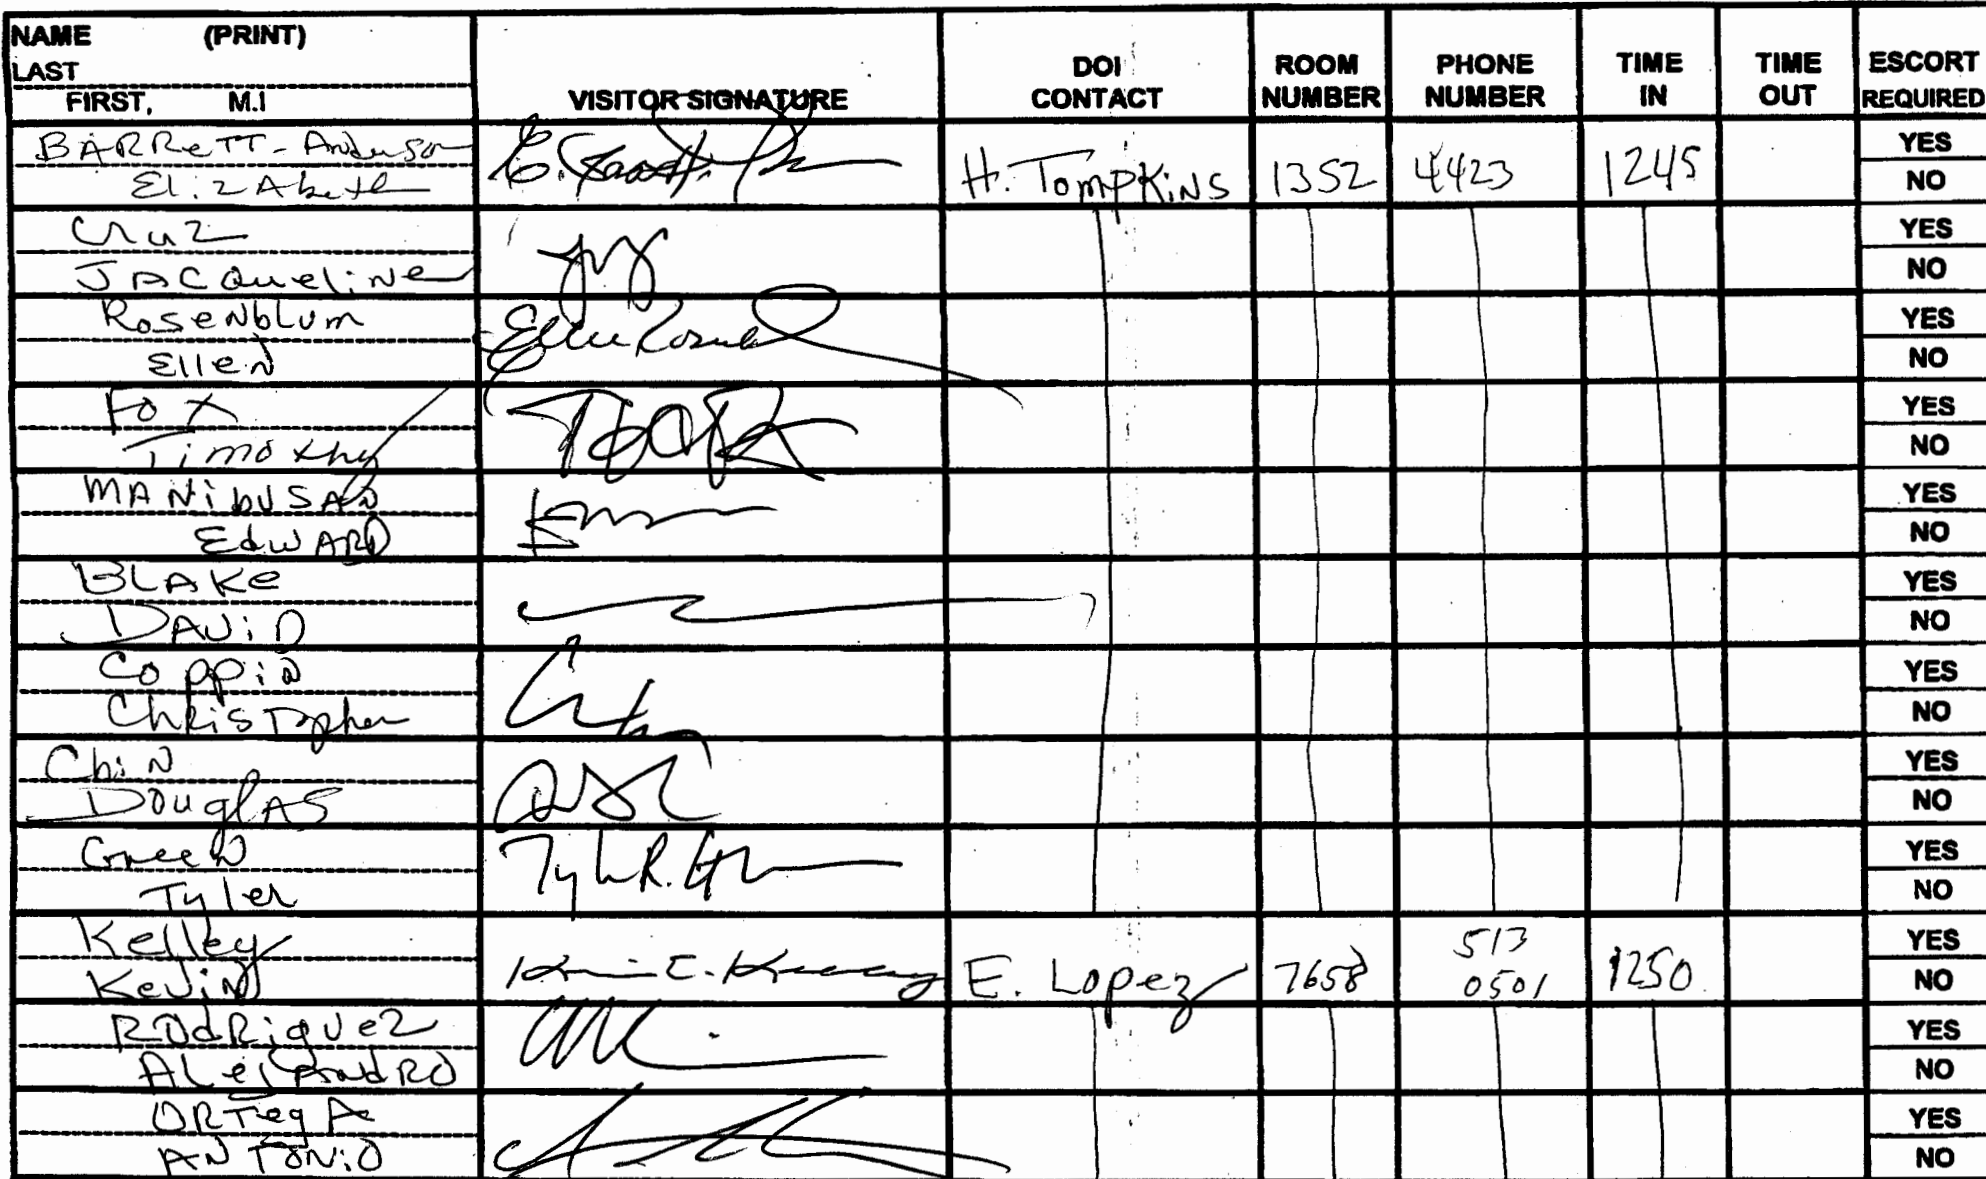 NAME (PRINT)
LAST
FIRST, M.I
VISITOR SIGNATURE
DOI CONTACT
ROOM NUMBER
PHONE NUMBER
TIME IN
TIME OUT
ESCORT REQUIRED
BARReTT-Anderson
ElizAbeth
H. TompKiNs 1352 4423 1245
YES
NO
Cruz
JACQueliNe
YES
NO
RoseNblum
Ellen
Ellen
YES
NO
Fox
Timothy
YES
NO
MANibuSAN
EdwARD
YES
NO
BLAKe
DAViD
YES
NO
CoppiN
ChRisTopher
YES
NO
ChiN
DouglAS
YES
NO
GreeN
Tyler
Tyler R.
YES
NO
Kelley
KeviN
E. Lopez 7658 513 0501 1250
YES
NO
RodRiguez
ALejAndRO
YES
NO
ORTegA
ANTONiO
YES
NO